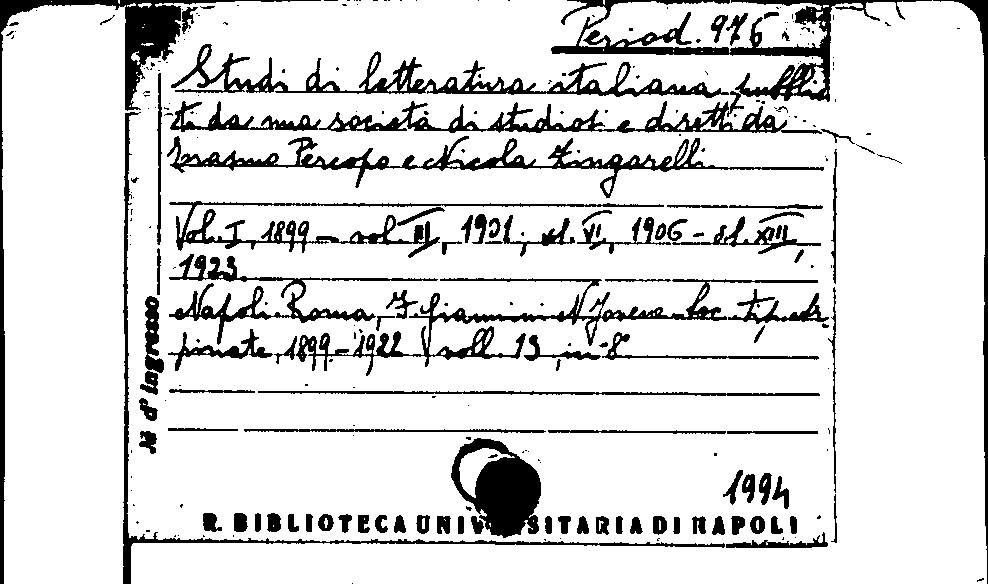 Period. 976
Studi di letteratura italiana pubblica
ti da una società di studiosi e diretti da
Erasmo Pèrcopo e Nicola Zingarelli.
Vol. I, 1899 – vol. III, 1901; vol. VI, 1906 – vol. XIII,
1923.
Napoli. Roma, F. Giannini N. Jovene. Soc. tip. edit.
1899-1922 voll. 13, in-8°
N d'ingresso
1994
R. BIBLIOTECA UNIVERSITARIA DI NAPOLI